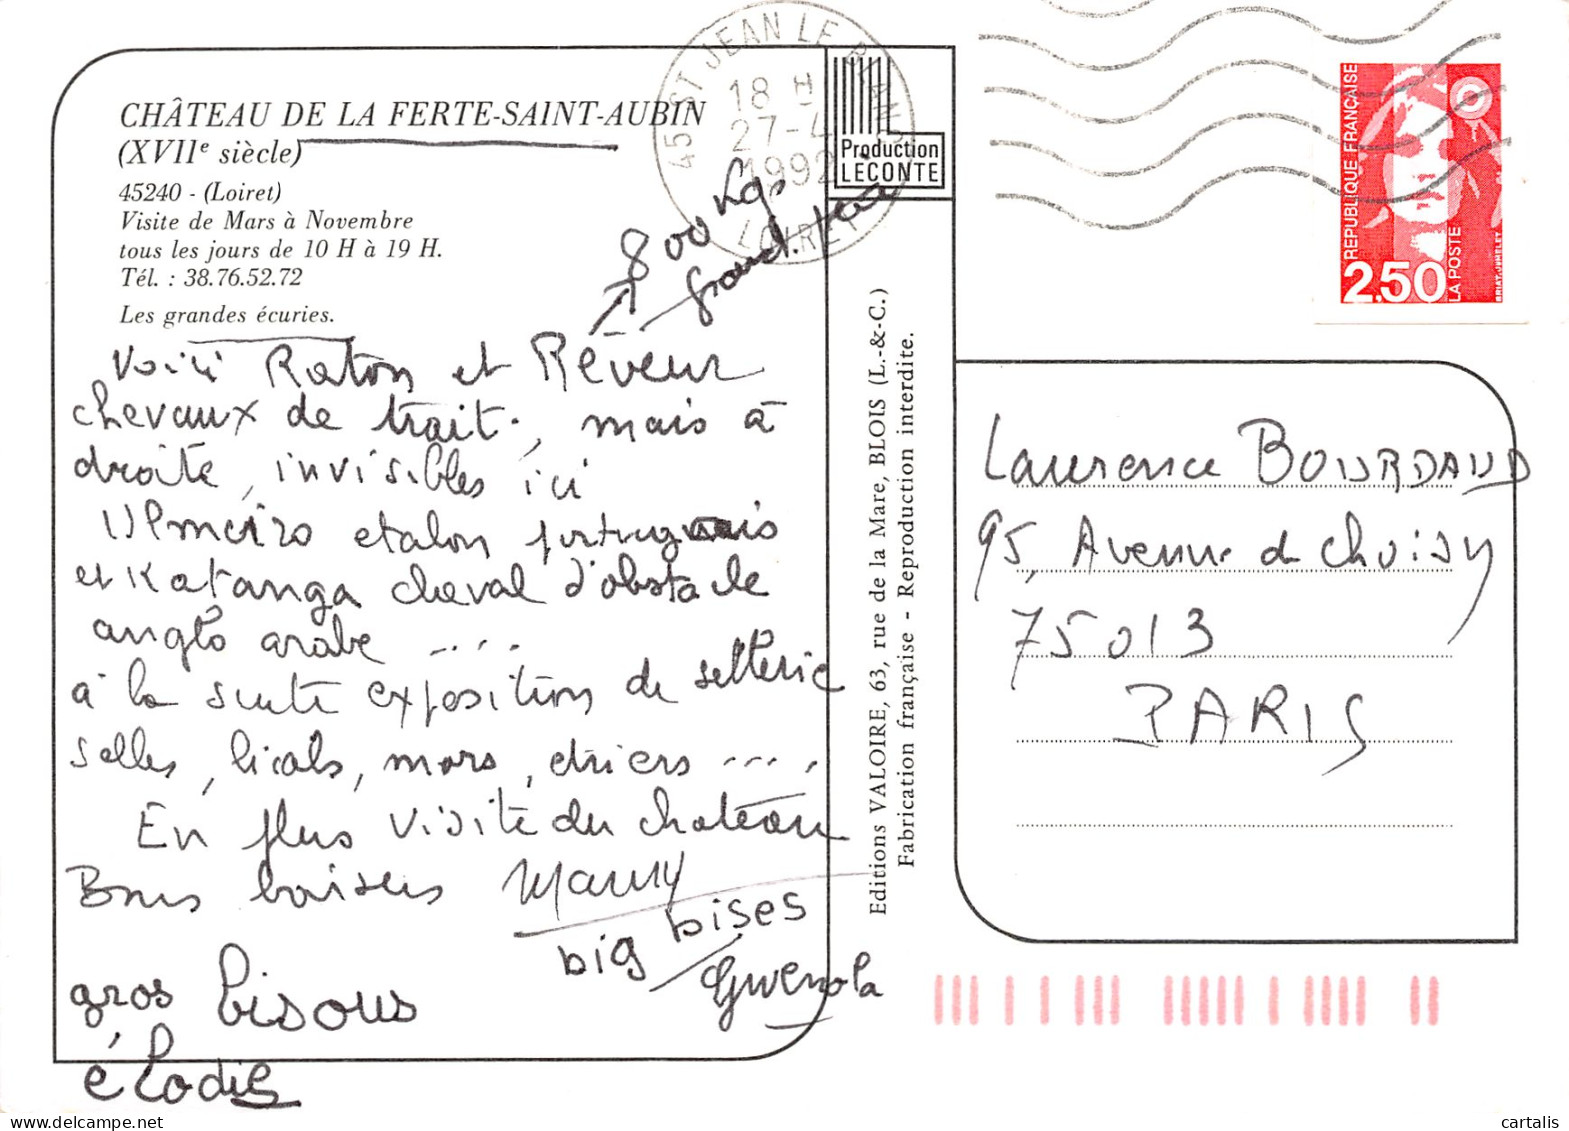 CHÂTEAU DE LA FERTE-SAINT-AUBIN
(XVIIe siècle)
45240 - (Loiret)
Visite de Mars à Novembre
tous les jours de 10 H à 19 H.
Tél. : 38.76.52.72
Les grandes écuries.
800 kgs
grand
Voici Raton et Rêveur
chevaux de trait, mais à
droite, invisibles ici
etalon portugais
et Katanga cheval d'obstacle
anglo arabe ....
à la suite exposition de sellerie
selles, licols, mors, étriers ....
En plus visite du chateau
Bons baisers Mamy
big bises
Gwenola
gros bisous
élodie
45 ST JEAN LE BLANC
18 H
27-4
1992
LOIRET
Production
LECONTE
Editions VALOIRE, 63, rue de la Mare, BLOIS (L.-&-C.)
Fabrication française - Reproduction interdite.
REPUBLIQUE FRANÇAISE
2,50
LA POSTE
BRIAT.JUMELET
Laurence BOURDAUD
95, Avenue de Choisy
75013
PARIS
cartalis